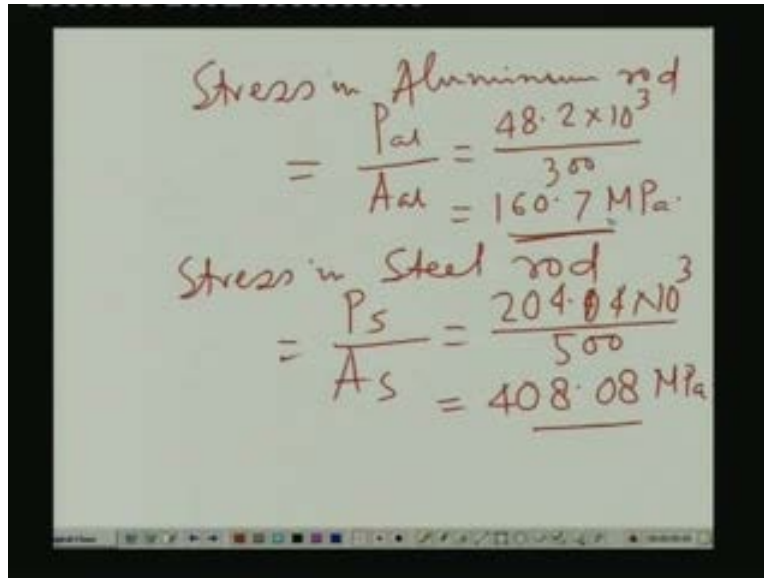 Stress in Aluminium rod
= Pal / Aal = 48.2 × 10³ / 300
= 160.7 MPa.
Stress in Steel rod
= Ps / As = 204.04 × 10³ / 500
= 408.08 MPa